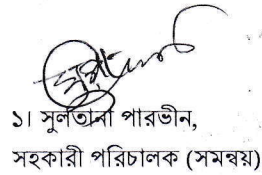 ১। সুলতানা পারভীন,
সহকারী পরিচালক (সমন্বয়)